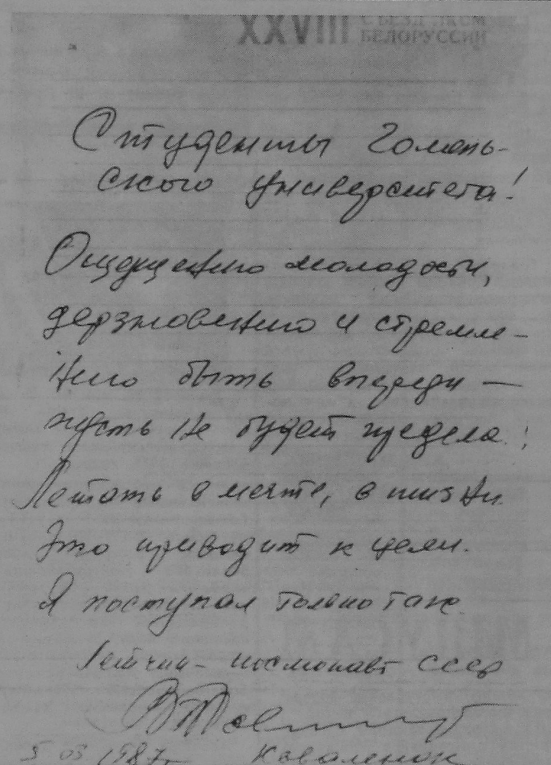 XXVIII СЪЕЗД ЛКСМ
БЕЛОРУССИИ
Студенты Гомель-
ского университета!
Ощущению молодости,
дерзновению и стремле-
нию быть впереди —
пусть не будет предела!
Летать в мечте, в жизни.
Это приводит к цели.
Я поступал только так
Летчик-космонавт СССР
5 03 1987г Коваленок